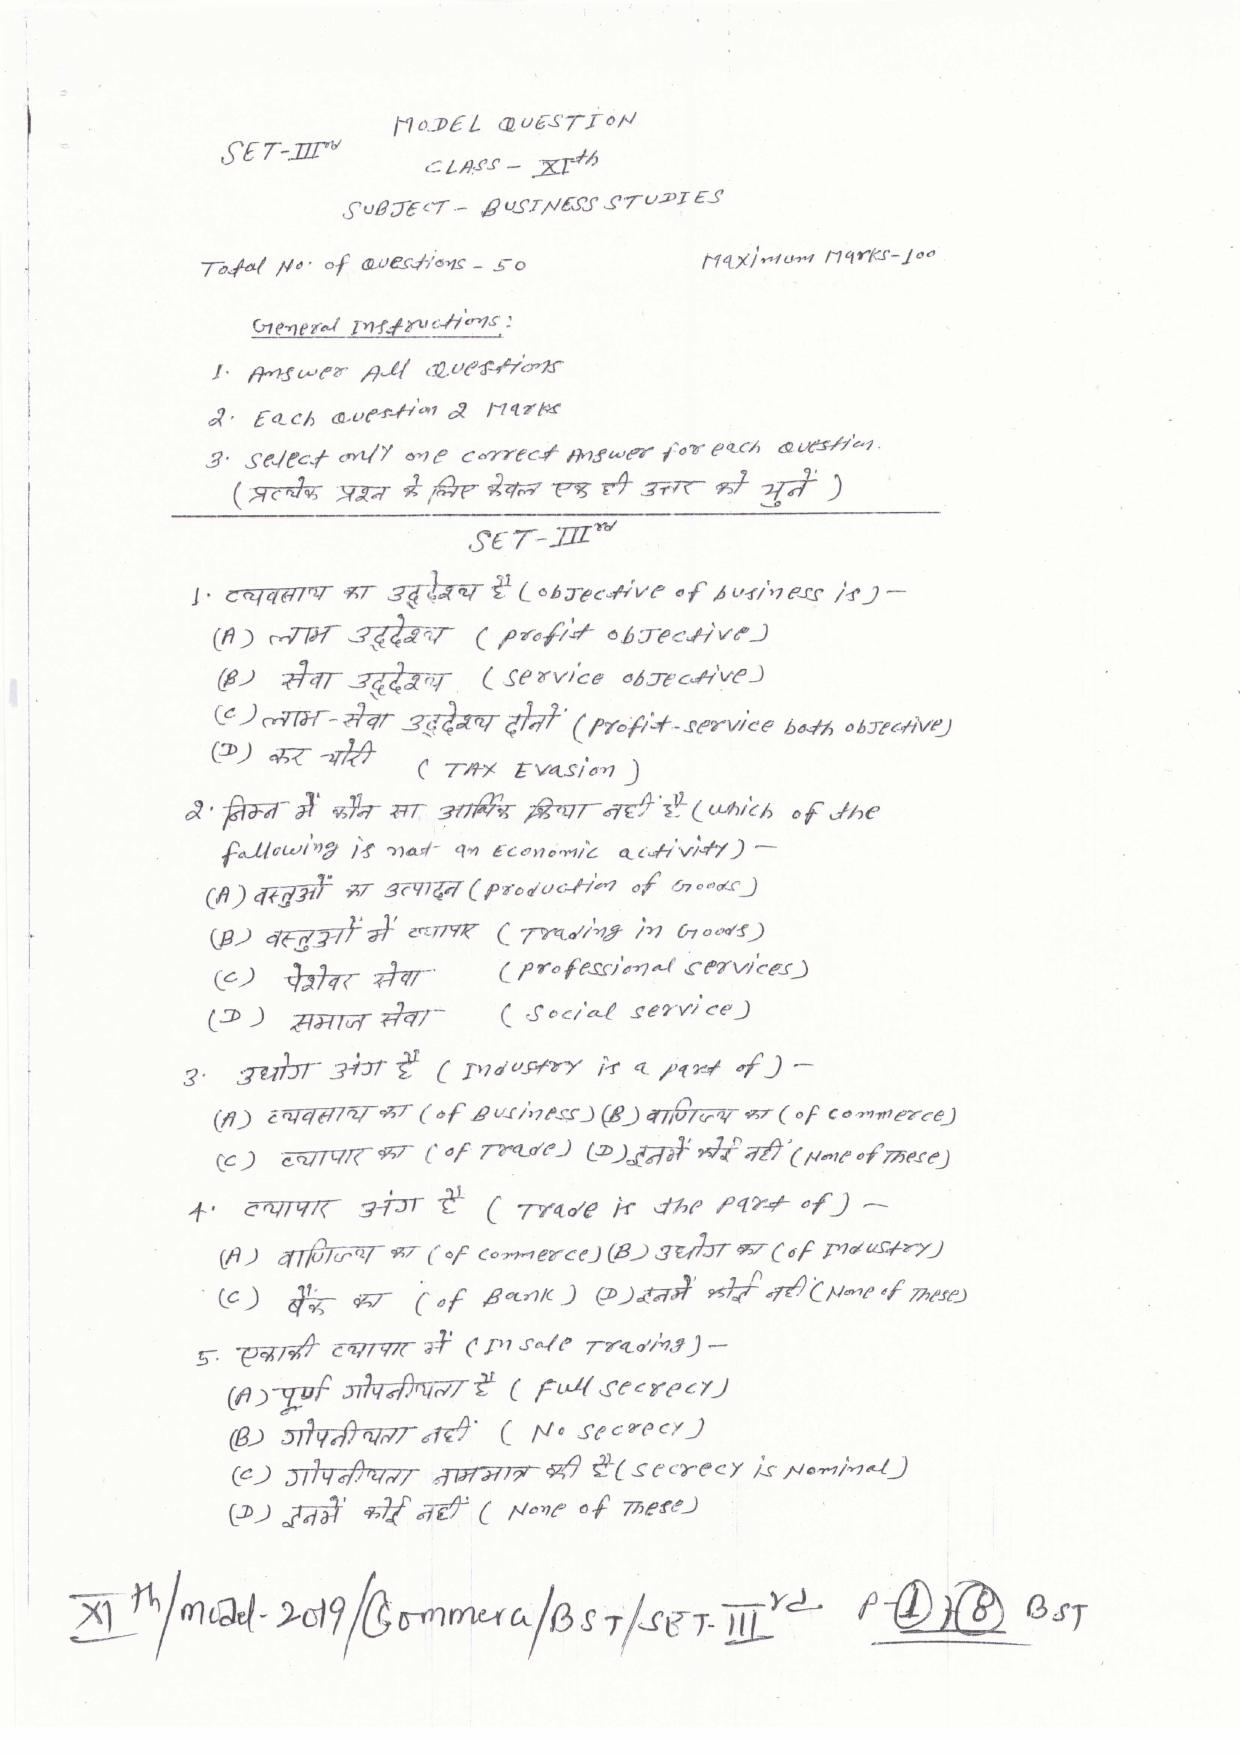 MODEL QUESTION
SET-IIIrd
CLASS - XIth
SUBJECT - BUSINESS STUDIES
Total No. of Questions - 50
Maximum Marks-100
General Instructions:
1. Answer All Questions
2. Each Question 2 Marks
3. Select only one correct Answer for each question.
(प्रत्येक प्रश्न के लिए केवल एक ही उत्तर को चुनें)
SET-IIIrd
1. व्यवसाय का उद्देश्य है (objective of business is) -
(A) लाभ उद्देश्य (profit objective)
(B) सेवा उद्देश्य (service objective)
(C) लाभ-सेवा उद्देश्य दोनों (profit-service both objective)
(D) कर चोरी (TAX Evasion)
2. निम्न में कौन सा आर्थिक क्रिया नहीं है (which of the
following is not an Economic activity) -
(A) वस्तुओं का उत्पादन (production of Goods)
(B) वस्तुओं में व्यापार (Trading in Goods)
(C) पेशेवर सेवा (professional services)
(D) समाज सेवा (social service)
3. उद्योग अंग है (Industry is a part of) -
(A) व्यवसाय का (of Business) (B) वाणिज्य का (of commerce)
(C) व्यापार का (of Trade) (D) इनमें कोई नहीं (None of These)
4. व्यापार अंग है (Trade is the part of) -
(A) वाणिज्य का (of commerce) (B) उद्योग का (of Industry)
(C) बैंक का (of Bank) (D) इनमें कोई नहीं (None of These)
5. एकाकी व्यापार में (In sole Trading) -
(A) पूर्ण गोपनीयता है (Full secrecy)
(B) गोपनीयता नहीं (No secrecy)
(C) गोपनीयता नाममात्र की है (secrecy is Nominal)
(D) इनमें कोई नहीं (None of These)
XIth/Model-2019/Commerce/BST/SET-IIIrd P-1 8 BST